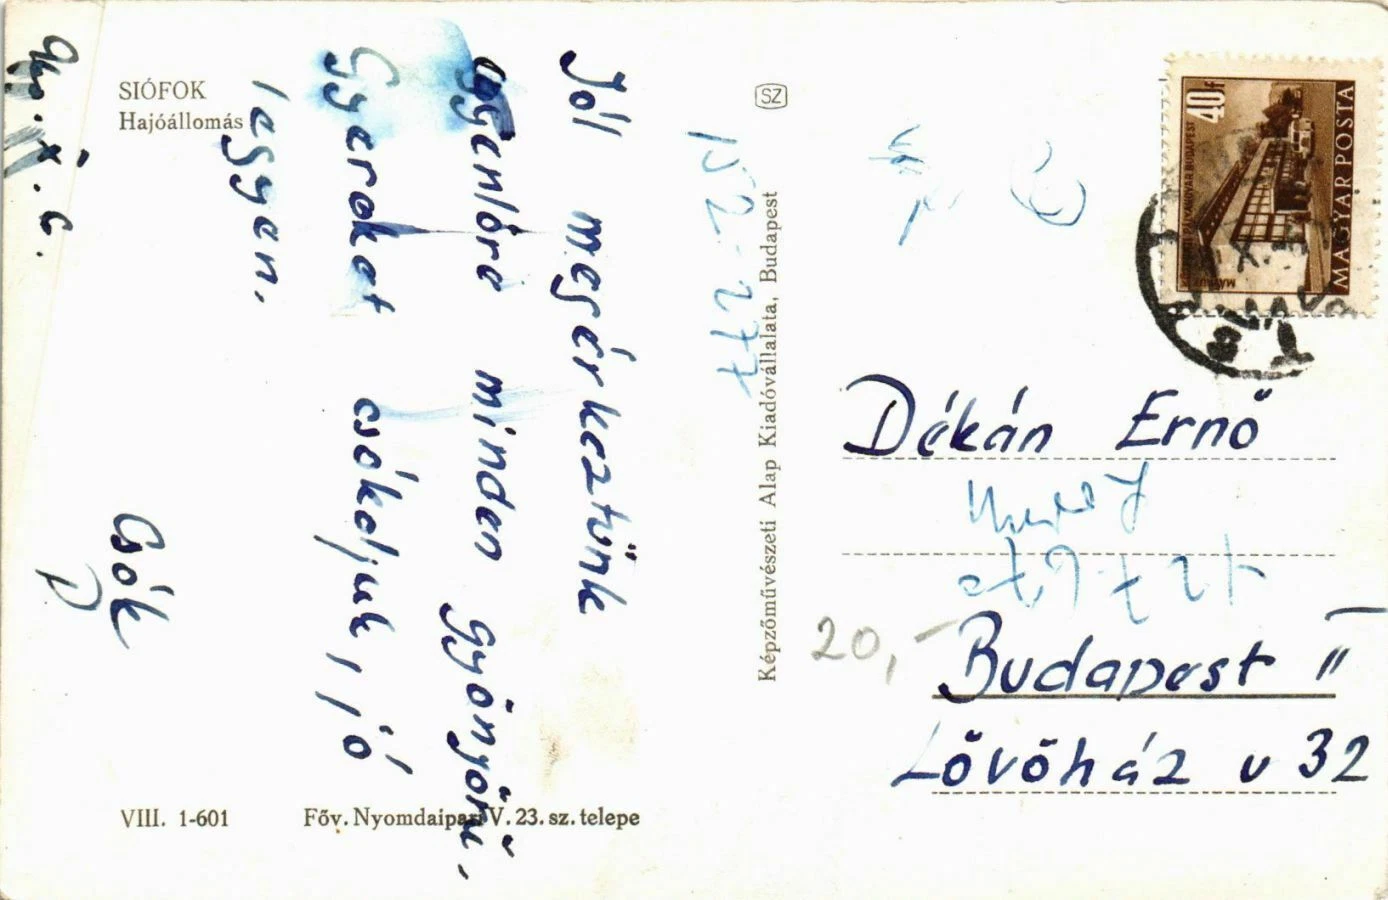 SIÓFOK
Hajóállomás
Jól megérkeztünk
egyenlőre minden gyönyörű,
Gyereket csókoljuk, jó
legyen.
Csók
VIII. 1-601
Főv. Nyomdaipari V. 23. sz. telepe
Képzőművészeti Alap Kiadóvállalata, Budapest
SZ
152-277
40f
MAGYAR POSTA
Dékán Ernő
Budapest II
Lövőház u 32
20,-